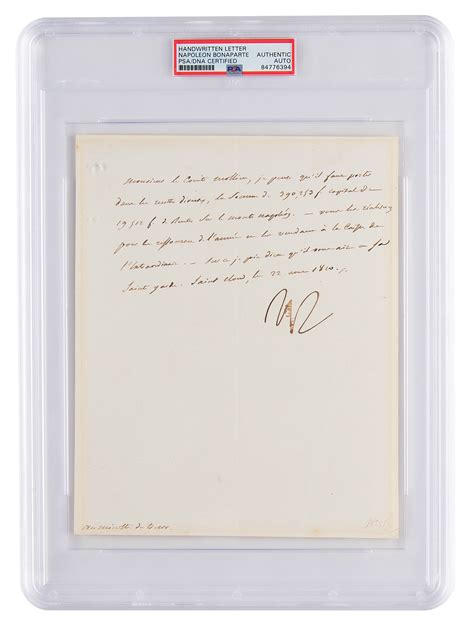 HANDWRITTEN LETTER
NAPOLEON BONAPARTE
PSA/DNA CERTIFIED
AUTHENTIC
AUTO
84776394
PSA
Monsieur le Comte Mollien, je pense qu'il faut porter
dans les recettes diverses, la Somme de 390,253 f capital de
19,512 f de Rentes Sur le mont napoléon. — vous les réaliserez
pour le de l'année en les vendant à la Caisse de
l'Extraordinaire. — Sur ce je prie dieu qu'il vous ait en sa
Sainte garde. Saint Cloud, le 22 1810.